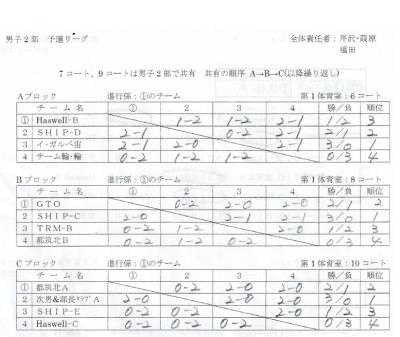 男子2部 予選リーグ 全体責任者:芹沢・葭原
福田
7コート、9コートは男子2部で共有 共有の順序 A→B→C(以降繰り返し)
Aブロック 進行係:①のチーム 第1体育室:6コート
チーム名 ① 2 3 4 勝/負 順位
① Haswell-B 1-2 1-2 2-1 1/2 3
2 SHIP-D 2-1 0-2 2-1 2/1 2
3 イ・ガルベ宙 2-1 2-0 2-1 3/0 1
4 チーム輪・輪 0-2 1-2 1-2 0/3 4
Bブロック 進行係:①のチーム 第1体育室:8コート
チーム名 ① 2 3 4 勝/負 順位
① GTO 0-2 2-0 2-0 2/1 2
2 SHIP-C 2-0 2-1 2-1 3/0 1
3 TRM-B 0-2 1-2 2-0 1/2 3
4 都筑北B 0-2 1-2 0-2 0/3 4
Cブロック 進行係:①のチーム 第1体育室:10コート
チーム名 ① 2 3 4 勝/負 順位
① 都筑北A 0-2 2-0 2-0 2/1 2
2 次男&部長クラブA 2-0 2-0 2-0 3/0 1
3 SHIP-E 0-2 0-2 2-0 1/2 3
4 Haswell-C 0-2 0-2 0-2 0/3 4